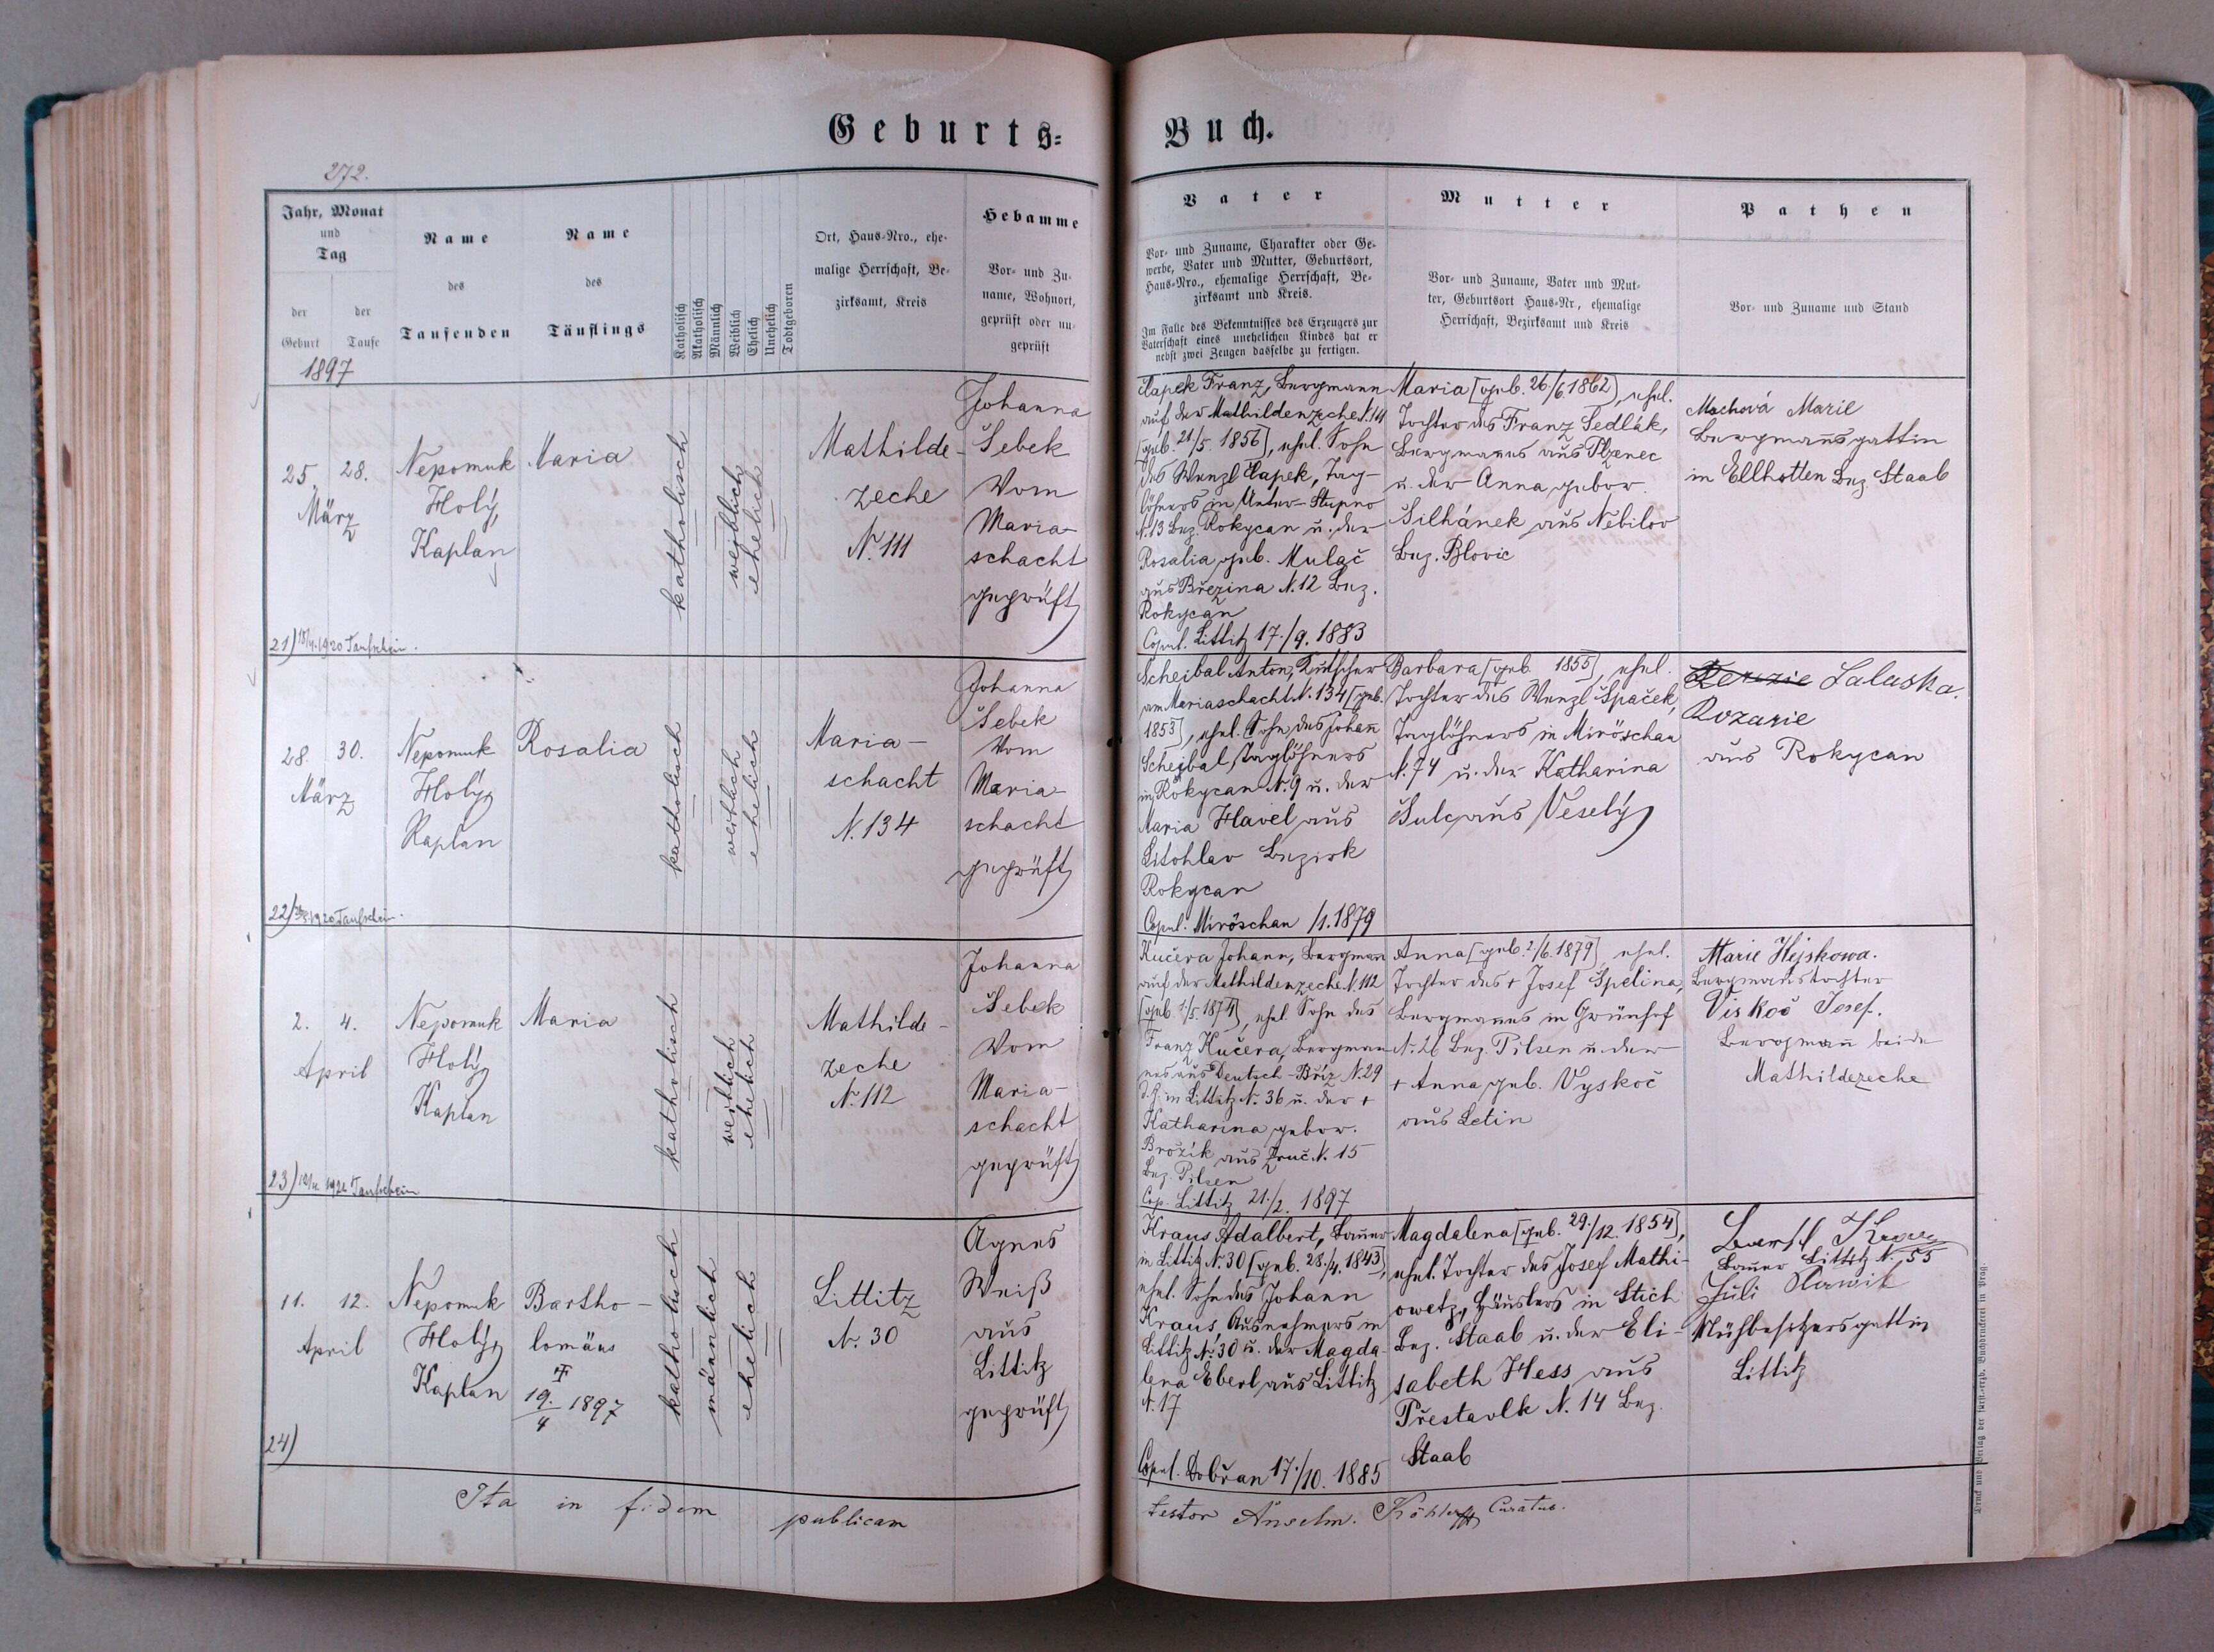 Geburts=
Buch.
272.
Jahr, Monat
und
Tag
der
Geburt
der
Taufe
Name
des
Taufenden
Name
des
Täuflings
Katholisch
Akatholisch
Männlich
Weiblich
Ehelich
Unehelich
Todtgeboren
Ort, Haus-Nro., ehe-
malige Herrschaft, Be-
zirksamt, Kreis
Hebamme
Vor- und Zu-
name, Wohnort,
geprüft oder un-
geprüft
Vater
Vor- und Zuname, Charakter oder Ge-
werbe, Vater und Mutter, Geburtsort,
Haus-Nro., ehemalige Herrschaft, Be-
zirksamt und Kreis.
Im Falle des Bekenntnisses des Erzeugers zur
Vaterschaft eines unehelichen Kindes hat er
nebst zwei Zeugen dasselbe zu fertigen.
Mutter
Vor- und Zuname, Vater und Mut-
ter, Geburtsort Haus-Nr., ehemalige
Herrschaft, Bezirksamt und Kreis
Pathen
Vor- und Zuname und Stand
1897
25. 28.
März
Nepomuk
Holý,
Kaplan
Maria
katholisch
weiblich
ehelich
Mathilde-
zeche
N. 111
Johanna
Šebek
vom
Maria-
schacht
geprüft
Čapek Franz, Bergmann
auf der Mathildenzeche N. 111
[geb. 21/5. 1856], ehel. Sohn
des Wenzl Čapek, Tag-
löhners in Unter-Stupno
N. 13 Bez. Rokycan u. der
Rosalia geb. Mulač
aus Březina N. 12 Bez.
Rokycan
Copul. Littitz 17./9. 1883
Maria [geb. 26./6. 1862], ehel.
Tochter des Franz Sedlák,
Bergmanns aus Plzenec
u. der Anna gebor.
Šilhánek aus Nebilov
Bez. Blovic
Machová Marie
Bergmannsgattin
in Ellhotten Bez. Staab
21) 15/4. 1920 Taufschein.
28. 30.
März
Nepomuk
Holý,
Kaplan
Rosalia
katholisch
weiblich
ehelich
Maria-
schacht
N. 134
Johanna
Šebek
vom
Maria-
schacht
geprüft
Scheibal Anton, Kutscher
am Mariaschacht N. 134 [geb.
1853], ehel. Sohn des Johann
Scheibal, Taglöhners
in Rokycan N. 9 u. der
Maria Havel aus
Litohlav Bezirk
Rokycan
Copul. Miröschau /1. 1879
Barbara [geb. 1855], ehel.
Tochter des Wenzl Špaček,
Taglöhners in Miröschau
N. 74 u. der Katharina
Šulc aus Veselý
Salaska.
Rozarie
aus Rokycan
22) 1920 Taufschein.
2. 4.
April
Nepomuk
Holý,
Kaplan
Maria
katholisch
weiblich
ehelich
Mathilde-
zeche
N. 112
Johanna
Šebek
vom
Maria-
schacht
geprüft
Kučera Johann, Bergmann
auf der Mathildenzeche N. 112
[geb. 1./5. 1874], ehel. Sohn des
Franz Kučera, Bergman-
nes aus Deutsch-Bříz N. 29
d. Z. in Littitz N. 36 u. der +
Katharina gebor.
Brožík aus Druč N. 15
Bez. Pilsen
Cop. Littitz 21./2. 1897
Anna [geb. 2./6. 1879], ehel.
Tochter des + Josef Špelina,
Bergmannes in Grünhof
N. 26 Bez. Pilsen u. der
+ Anna geb. Vyskoč
aus Letin
Marie Hejskowa.
Bergmannstochter
Viskoč Josef.
Bergmann beide
Mathildezeche
23) 1926 Taufschein
11. 12.
April
Nepomuk
Holý,
Kaplan
Bartho-
lomäus
✝
19./4 1897
katholisch
männlich
ehelich
Littitz
N. 30
Agnes
Weiß
aus
Littitz
geprüft
Kraus Adalbert, Bauer
in Littitz N. 30 [geb. 28./4. 1843],
ehel. Sohn des Johann
Kraus Ausnehmers in
Littitz N. 30 u. der Magda-
lena Eberl aus Littitz
N. 17
Copul. Dobřan 17./10. 1885
Magdalena [geb. 29./12. 1854],
ehel. Tochter des Josef Mathi-
owetz, Häuslers in Stich
Bez. Staab u. der Eli-
sabeth Hess aus
Přestavlk N. 14 Bez.
Staab
Bartl
Bauer Littitz N. 55
Juli Slawik
Mühlbesitzersgattin
Littitz
24)
Ita in fidem publicam
testor Anselm. Köhler Curatus.
Druck und Verlag der fürst.-erzb. Buchdruckerei in Prag.